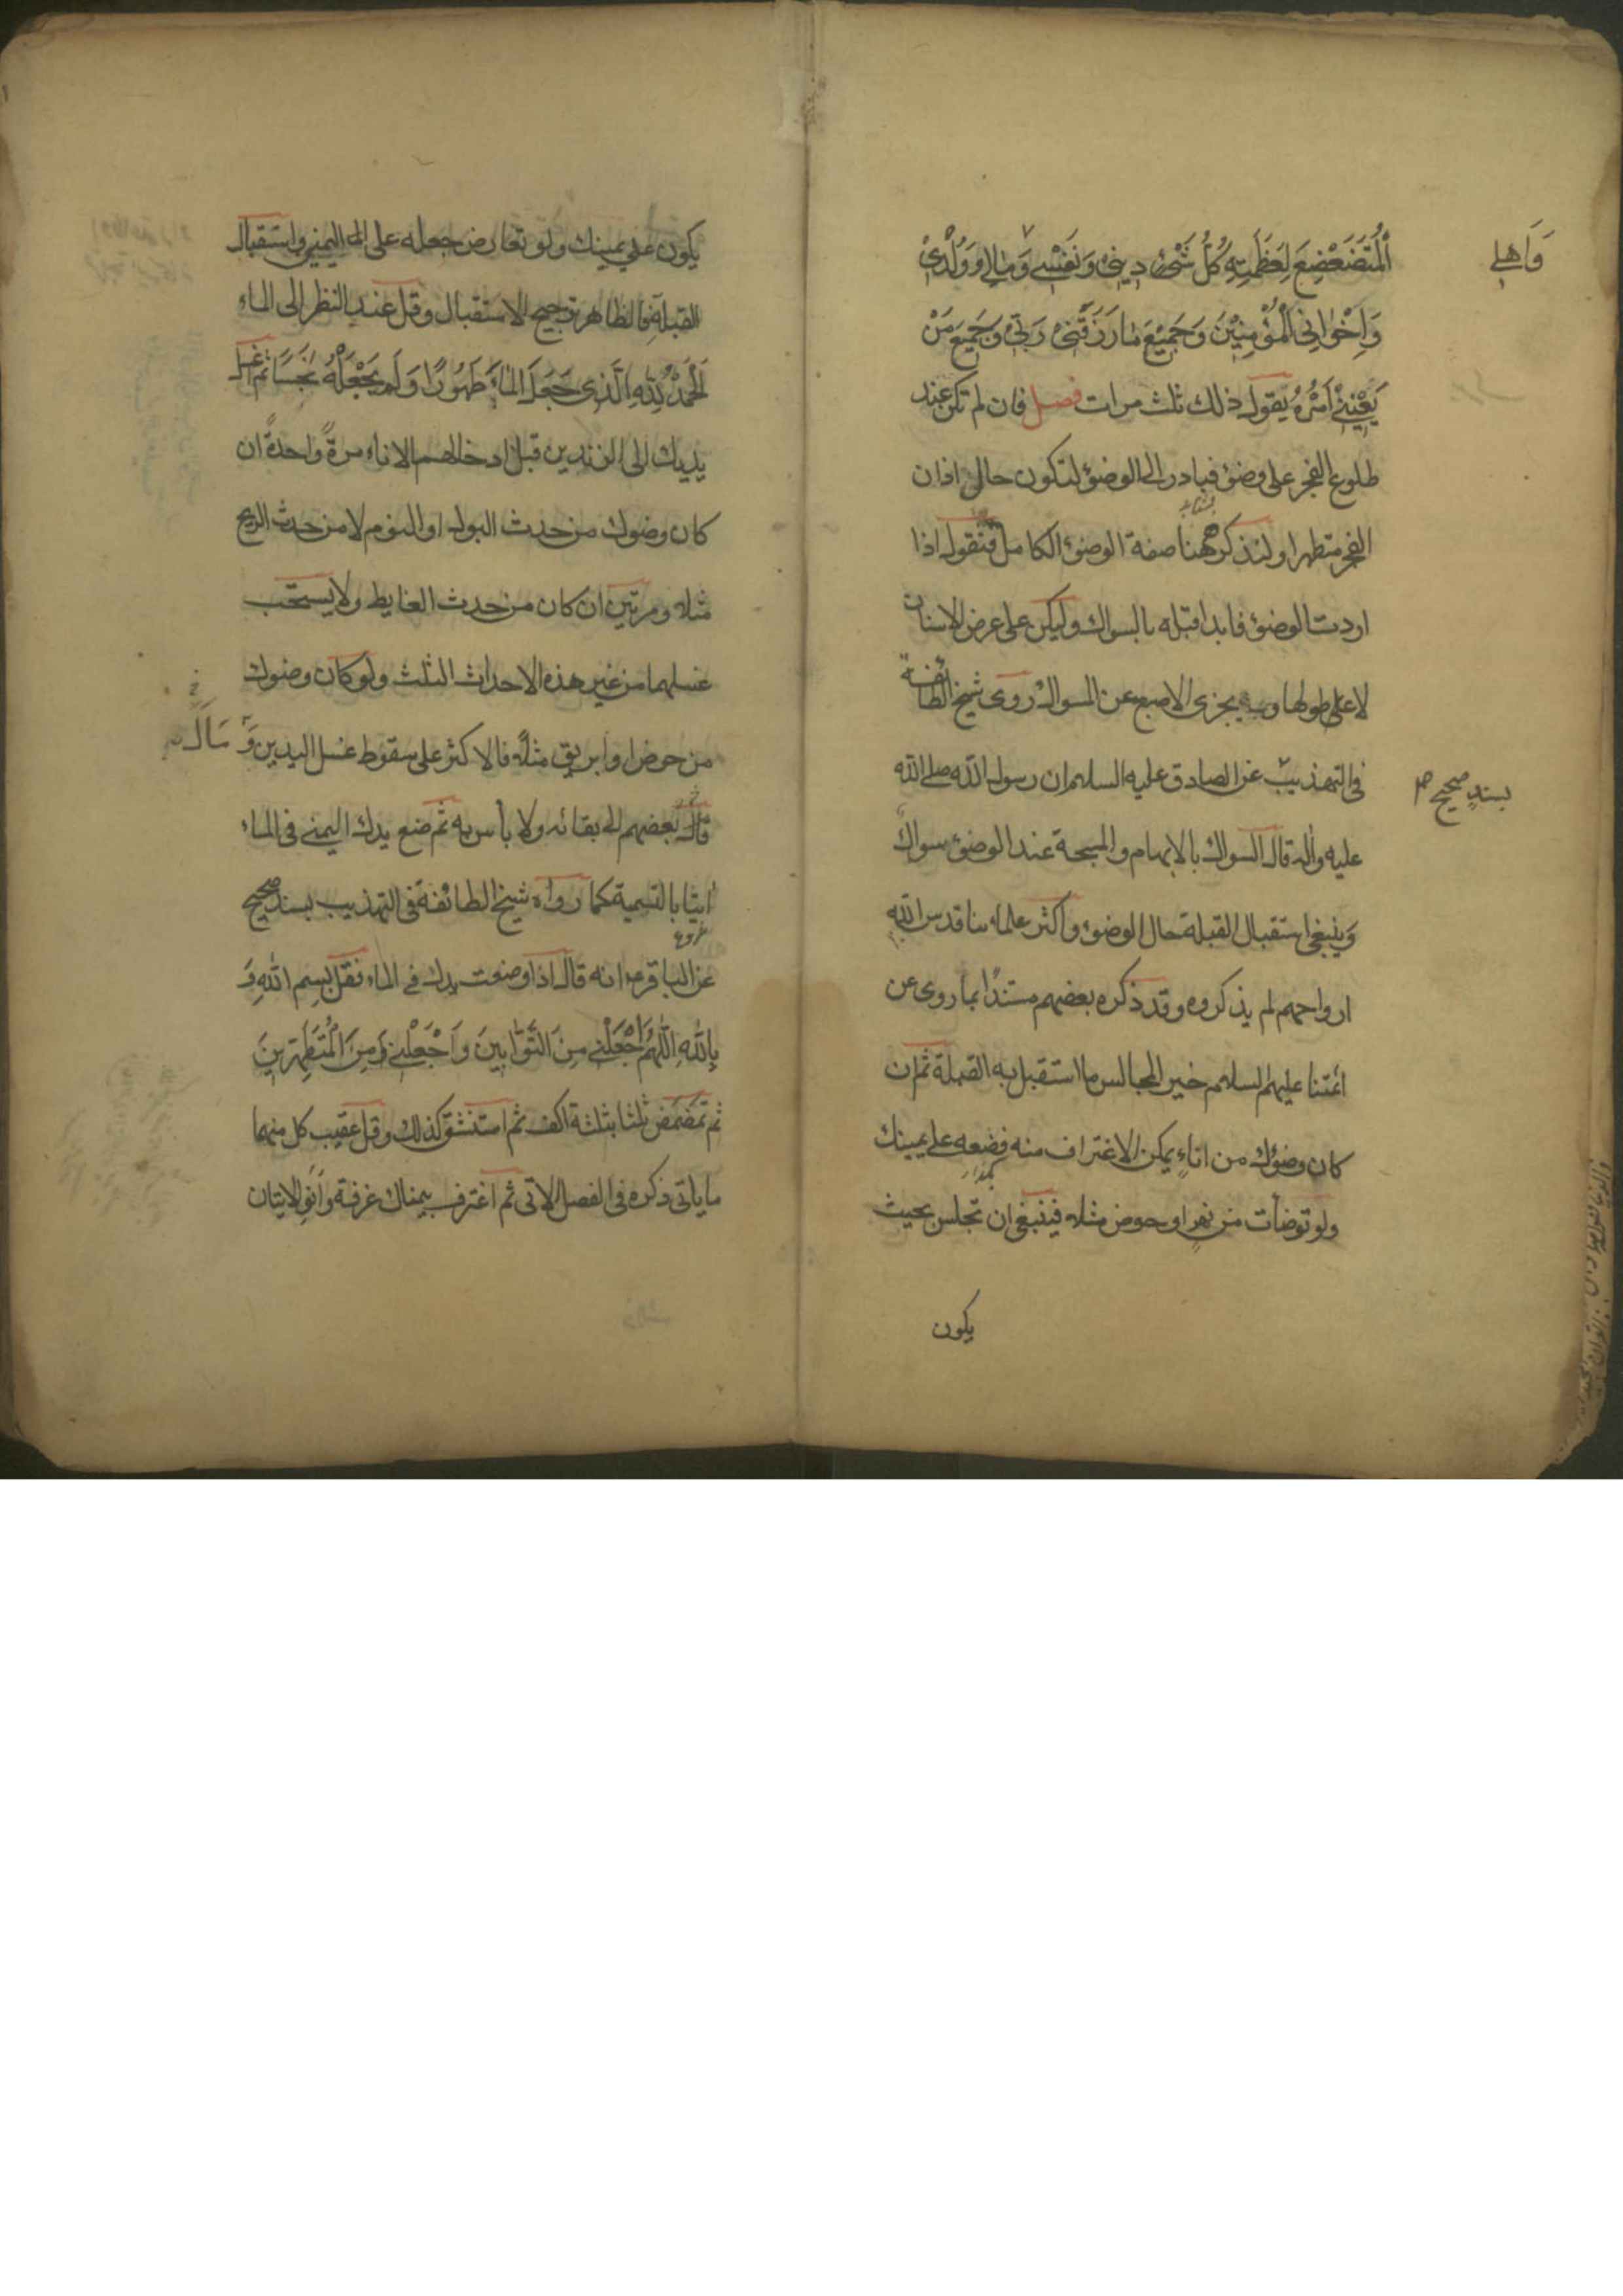 اَلْمُتَضَعْضِعَ لِعَظَمَتِهِ كُلُّ شَیْءٍ دِینِی وَنَفْسِی وَمَالِی وَوُلْدِی
وَاَهْلِی
وَاِخْوَانِی الْمُؤْمِنِیْنَ وَجَمِیْعَ مَا رَزَقَنِی رَبِّی وَجَمِیْعَ مَنْ
یَعْنِیْنِی اَمْرُهُ یقول ذلک ثلث مرات فصل فان لم تکن عند
طلوع الفجر علی وضوء فبادر الی الوضوء لتکون حال اذان
الفجر متطهرا ولنذکر ههنا صفة الوضوء الکامل فنقول اذا
اردت الوضوء فابدا قبله بالسواک ولیکن علی عرض الاسنان
لا علی طولها ویجزی الاصبع عن المسواک روی شیخ الطائفة
فی التهذیب عن الصادق علیه السلم ان رسول الله صلی الله
بسند صحیح
علیه واله قال السواک بالابهام والمسبحة عند الوضوء سواک
وینبغی استقبال القبلة حال الوضوء واکثر علمائنا قدس الله
ارواحهم لم یذکروه وقد ذکره بعضهم مستندًا بما روی عن
ائمتنا علیهم السلام خیر المجالس ما استقبل به القبلة ثم ان
کان وضوئک من اناءٍ یمکن الاغتراف منه فضعه علی یمینک
ولو توضأت من نهرٍ او حوض مثلا فینبغی ان تجلس بحیث
یکون
یکون علی یمینک ولو تعارض جعله علی الیمنی واستقبال
القبلة فالظاهر ترجیح الاستقبال وقل عند النظر الی الماء
اَلْحَمْدُ لِلّٰهِ الَّذِی جَعَلَ الْمَاءَ طَهُورًا وَلَمْ یَجْعَلْهُ نَجَسًا ثم اغسل
یدیک الی الزندین قبل ادخالهما الاناء مرةً واحدةً ان
کان وضوئک من حدث البول او النوم لا من حدث الریح
مثلا ومرتین ان کان من حدث الغایط ولا یستحب
غسلهما من غیر هذه الاحداث الثلث ولو کان وضوئک
من حوض او ابریق مثلًا فالاکثر علی سقوط غسل الیدین وَمَالَ
قال بعضهم الی بقائه ولا بأس به ثم ضع یدک الیمنی فی الماء
اتیا بالتسمیة کما رواه شیخ الطائفة فی التهذیب بسند صحیح
عن الباقر ع انه قال اذا وضعت یدک فی الماء فقل بِسْمِ اللّٰهِ وَ
بِاللّٰهِ اَللّٰهُمَّ اجْعَلْنِی مِنَ التَّوَّابِینَ وَاجْعَلْنِی مِنَ الْمُتَطَهِّرِینَ
ثم تمضمض ثلثا بثلثة اکف ثم استنشق کذلک وقل عقیب کل منهما
ما یاتی ذکره فی الفصل الاتی ثم اغترف بیمناک غرفة وانو الاتیان